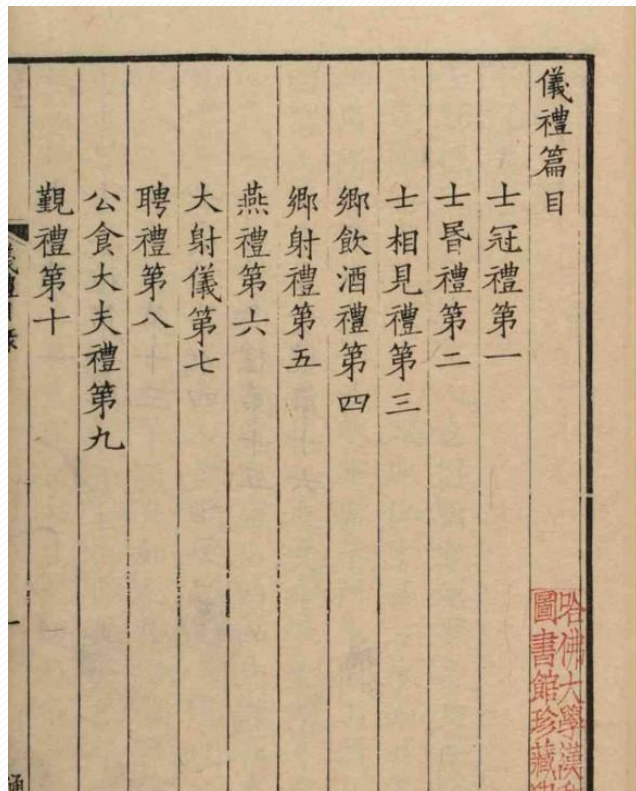 儀禮篇目
士冠禮第一
士昬禮第二
士相見禮第三
鄉飲酒禮第四
鄉射禮第五
燕禮第六
大射儀第七
聘禮第八
公食大夫禮第九
覲禮第十
哈佛大學漢
圖書館珍藏